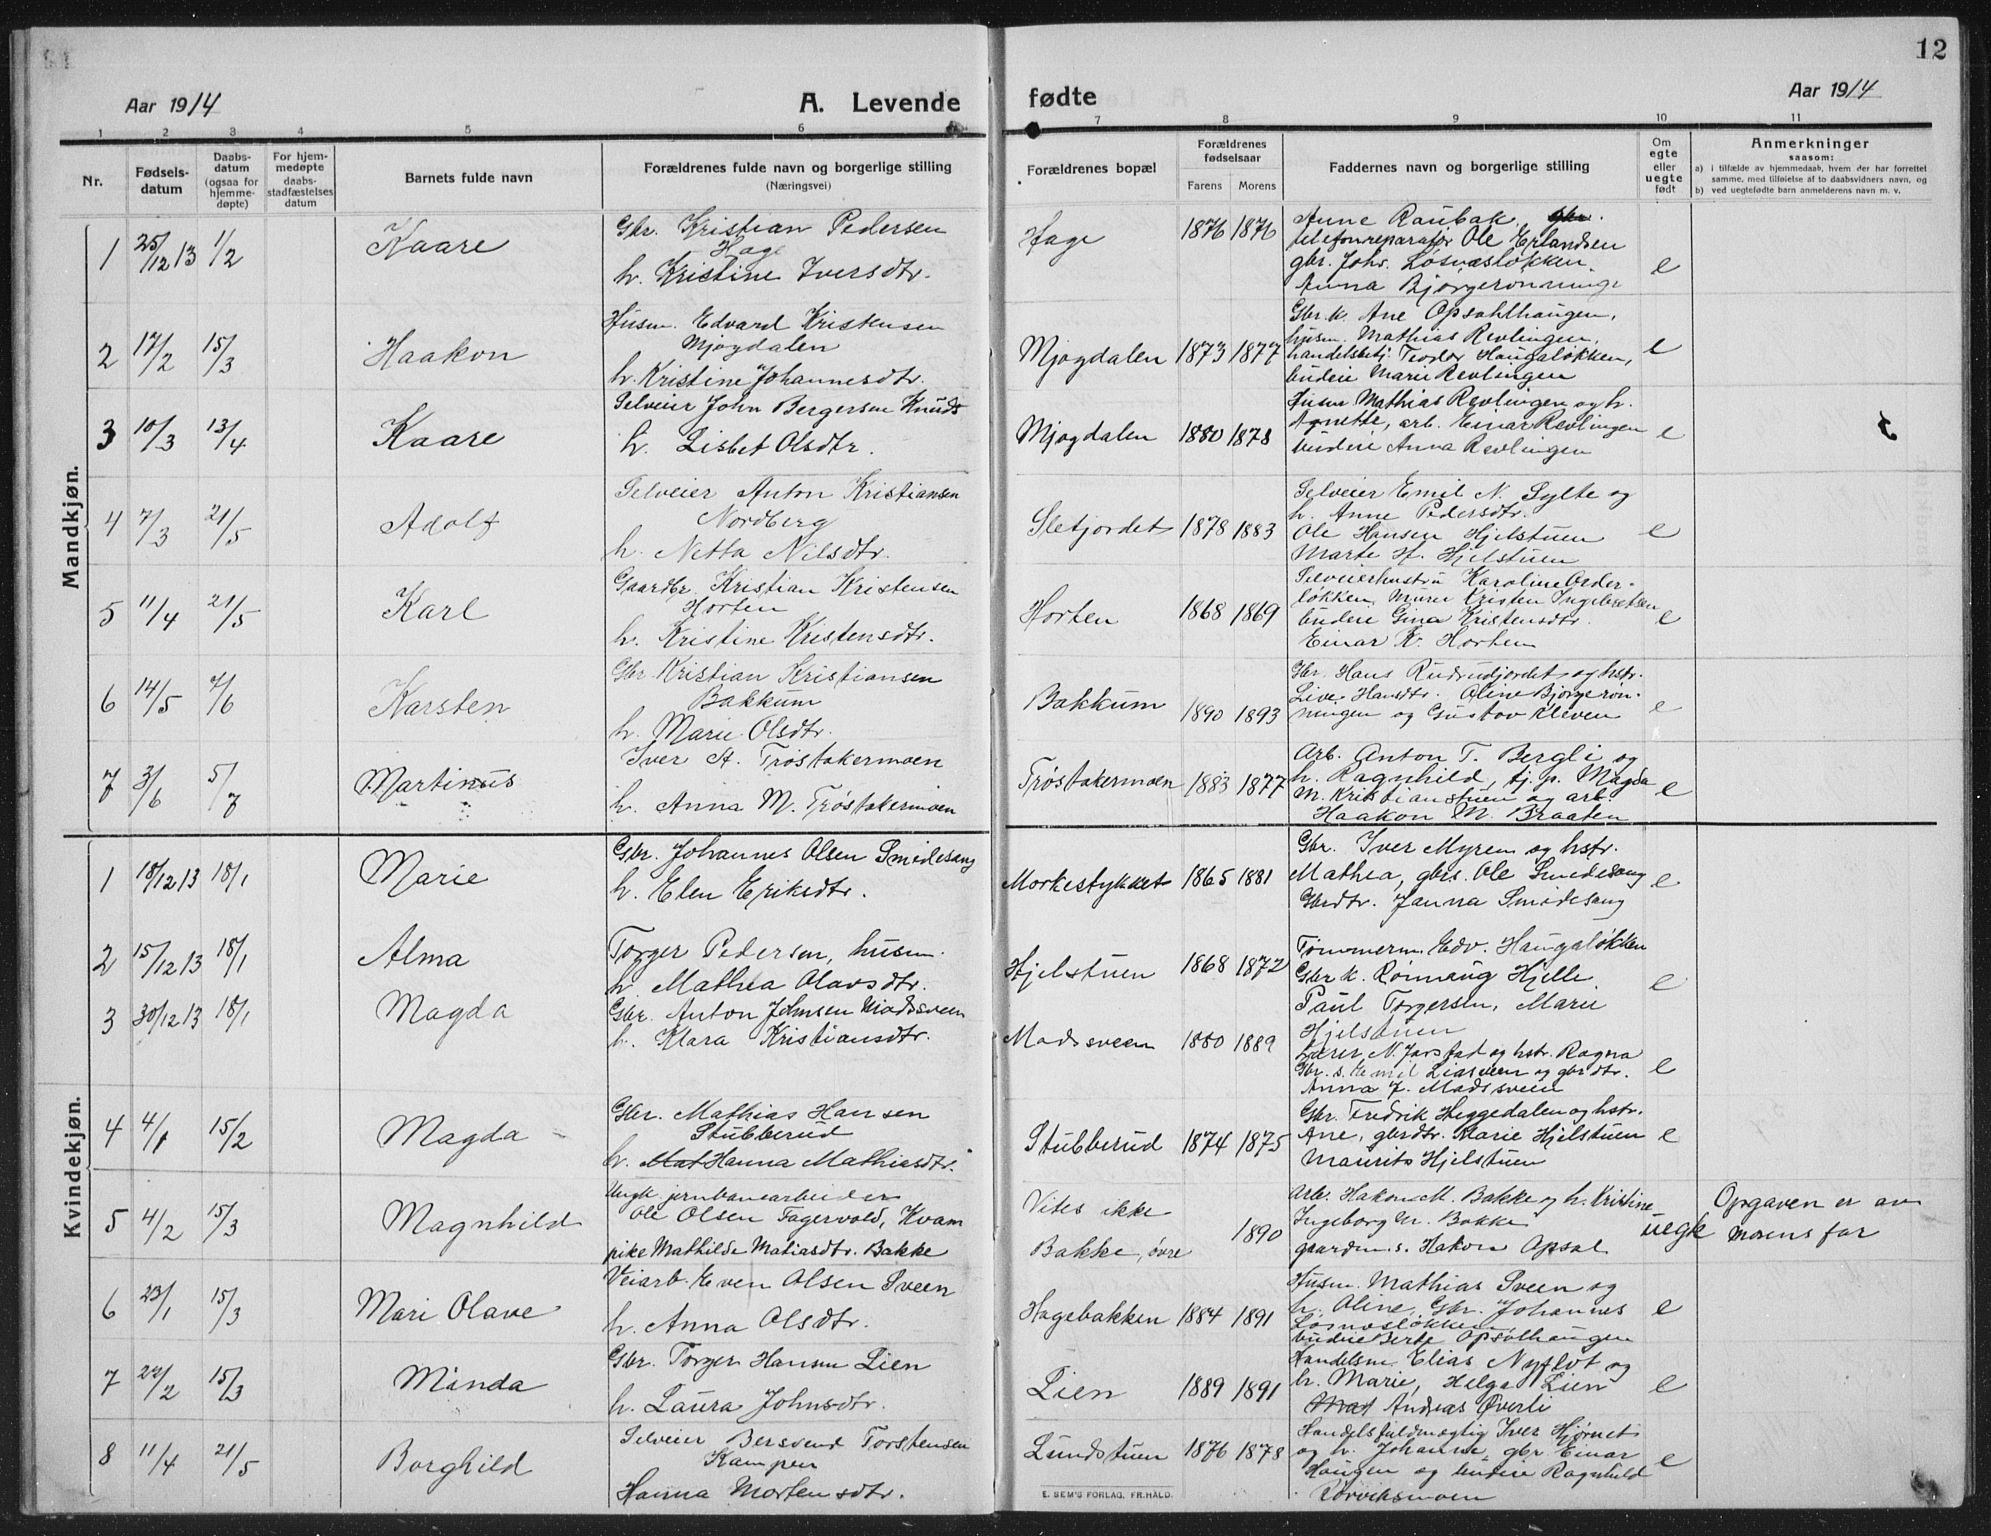 12
Aar 1914 A. Levende fødte Aar 1914
1 2 3 4 5 6 7 8 9 10 11
Nr.
Fødsels-
datum
Daabs-
datum
(ogsaa for
hjemme-
døpte)
For hjem-
medøpte
daabs-
stadfæstelses
datum
Barnets fulde navn
Forældrenes fulde navn og borgerlige stilling
(Næringsvei)
Forældrenes bopæl
Forældrenes
fødselsaar
Farens Morens
Faddernes navn og borgerlige stilling
Om
egte
eller
uegte
født
Anmerkninger
saasom:
a) i tilfælde av hjemmedaab, hvem der har forrettet
samme, med tilføielse af to daabsvidners navn, og
b) ved uegtefødte barn anmelderens navn m. v.
Mandkjøn.
1 25/12 13 1/2 Kaare
Gbr. Kristian Pedersen
Hage
h. Kristine Iversdtr.
Hage 1876 1876
Anne Raubak, gbr.
telefonreparatør Ole Erlandsen
gbr. Johs. Losnesløkken
Anna Bjørgerønninge
e
2 17/2 15/3 Haakon
Husm. Edvard Kristensen
Mjogdalen
h. Kristine Johannesdtr.
Mjogdalen 1873 1877
Gbr.k. Ane Opsahlhaugen,
husm. Mathias Revlingen,
handelsbetj. Teodor Haugaløkken,
budeie Marie Revlingen
e
3 10/3 13/4 Kaare
Selveier John Bergersen Knuds
h. Lisbet Olsdtr.
Mjogdalen 1880 1878
Husm Mathias Revlingen og h.
Agnette, arb. Einar Revlingen
budeie Anna Revlingen
e
4 7/3 21/5 Adolf
Selveier Anton Kristiansen
Nordberg
h. Netta Nilsdtr.
Sletjordet 1878 1883
Selveier Emil N. Sylte og
h. Anne Pedersdtr.
Ole Hansen Hjelstuen
Marte H. Hjelstuen
e
5 11/4 21/5 Karl
Gaardbr. Kristian Kristensen
Horten
h. Kristine Kristensdtr.
Horten 1868 1869
Selveierhustru Karoline Order-
løkken, Murer Kristen Ingebretsen
budeie Gina Kristensdtr.
Einar K. Horten
e
6 14/5 7/6 Karsten
Gbr. Kristian Kristiansen
Bakkum
h. Marie Olsdtr.
Bakkum 1890 1893
Gbr. Hans Rudrudjordet og hstr.
Live Hansdtr. Oline Bjørgerøn-
ningen og Gustav Kleven
e
7 3/6 5/7 Martinus
Iver A. Trøstakermoen
h. Anna M. Trøstakermoen
Trøstakermoen 1883 1877
Arb. Anton T. Bergli og
h. Ragnhild, tj.p. Magda
M. Kristianstuen og arb.
Haakon M. Braaten
e
Kvindekjøn.
1 18/12 13 18/1 Marie
Gbr. Johannes Olsen Smidesang
h. Elen Eriksdtr.
Morkestykket 1865 1881
Gbr. Iver Myren og hstr.
Mathea, gbrs. Ole Smedesang
Gbrdtr. Janna Smidesang
e
2 15/12 13 18/1 Alma
Torger Pedersen, husm.
h. Mathea Olavsdtr.
Hjelstuen 1868 1872
Tømmerm. Edv. Haugaløkken
Gbr k. Rønnaug Hjelle
Paul Torgersen, Marie
Hjelstuen
e
3 30/12 13 18/1 Magda
Gbr. Anton Johnsen Madssveen
h. Klara Kristiansdtr.
Madssveen 1880 1889
Lærer N. Jarstad og hstr. Ragna
Gbr. s. Emil Liasveen og gbrdtr.
Anna J. Madssveen
e
4 4/1 15/2 Magda
Gbr. Mathias Hansen
Stubberud
h. Mat Hanna Mathiasdtr.
Stubberud 1874 1875
Gbr. Fredrik Heggedalen og hstr.
Ane, gbrdtr. Marie Hjelstuen
Maurits Hjelstuen
e
5 4/2 15/3 Magnhild
Ungk. jernbanearbeider
Ole Olsen Fagervold, Kvam
pike Mathilde Matiasdtr. Bakke
Vites ikke
Bakke, øvre 1890
Arb. Hakon M. Bakke og h. Kristine
Ingeborg M. Bakke
gaardm.s. Hakon Opsal
uegte
Opgaven er av
morens far
6 23/1 15/3 Mari Olave
Veiarb. Even Olsen Sveen
h. Anna Olsdtr.
Hagebakken 1884 1891
Husm. Mathias Sveen og
h. Oline, Gbr. Johannes
Losnesløkken
budeie Berte Opsalhaugen
e
7 22/2 15/3 Minda
Gbr. Torger Hansen Lien
h. Laura Johnsdtr.
Lien 1889 1891
Handelsm. Elias Nyflot og
h. Marie, Helga Lien
Mat Andreas Øverli
e
8 11/4 21/5 Borghild
Selveier Bersvend Torstensen
Kampen
Hanna Mortensdtr.
Lundstuen 1876 1878
Handelsfuldmægtig Iver Hjørnet
og h. Johanne, gbr Einar
Haugen og budeie Ragnhild
Rørviksmoen
e
E. SEM'S FORLAG, FR.HALD.